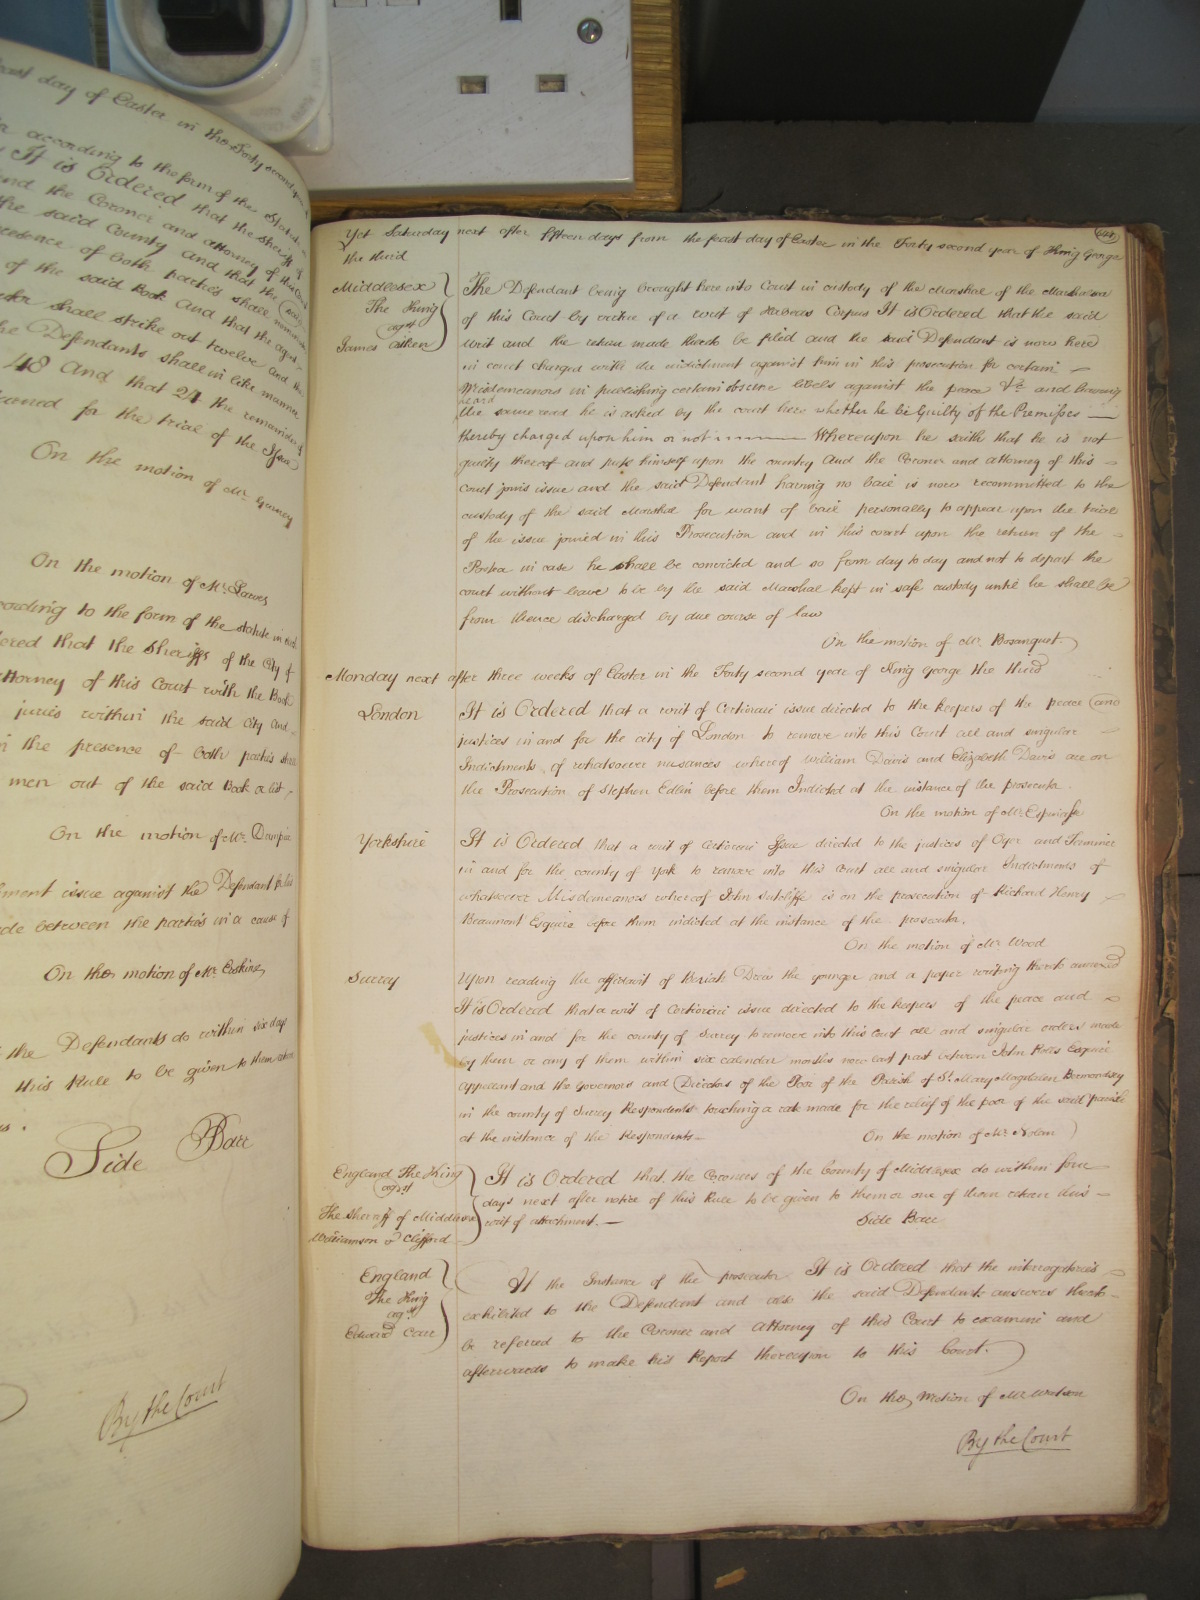 feast day of Easter in the Forty second year
according to the form of the Statute
It is Ordered that the Sheriff of
and the Coroner and attorney of this Court
the said County And that the
presence of both parties shall nominate
of the said Book And that the agent
shall strike out twelve And the
the Defendants shall in like manner
48 And that 24 the remainder of
returned for the trial of the Issue
On the motion of Mr Gurney
On the motion of Mr Lawes
according to the form of the statute in
Ordered that the Sheriffs of the City of
Attorney of this Court with the Book
juries within the said City and
in the presence of both parties shall
men out of the said Book a list
On the motion of Mr Dampier
issue against the Defendant for his
made between the parties in a cause of
On the motion of Mr Erskine
the Defendants do within six days
this Rule to be given to them return
Side Barr
By the Court
Yet Saturday next after fifteen days from the feast day of Easter in the Forty second year of King George
the third
Middlesex
The King
agst
James Aitken
The Defendant being brought here into Court in custody of the Marshal of the Marshalsea
of this Court by virtue of a writ of Habeas Corpus It is Ordered that the said
writ and the return made thereto be filed and the said Defendant is now here
in court charged with the indictment against him in this prosecution for certain
Misdemeanors in publishing certain obscene libels against the peace &c and having
heard
the same read he is asked by the court here whether he be Guilty of the Premisses
thereby charged upon him or not Whereupon he saith that he is not
guilty thereof and puts himself upon the country And the Coroner and attorney of this
Court joins issue and the said Defendant having no bail is now recommitted to the
custody of the said Marshal for want of bail personally to appear upon the trial
of the issue joined in this Prosecution and in this court upon the return of the
Postea in case he shall be convicted and so from day to day and not to depart the
court without leave to be by the said Marshal kept in safe custody until he shall be
from thence discharged by due course of law
On the motion of Mr Bosanquet
Monday next after three weeks of Easter in the Forty second year of King George the third
London
It is Ordered that a writ of Certiorari issue directed to the keepers of the peace and
justices in and for the city of London to remove into this Court all and singular
Indictments of whatsoever nusances whereof William Davis and Elizabeth Davis are on
the Prosecution of Stephen Edlin before them Indicted at the instance of the prosecutor
On the motion of Mr Espinasse
Yorkshire
It is Ordered that a writ of Certiorari Issue directed to the justices of Oyer and Terminer
in and for the county of York to remove into this Court all and singular Indictments of
whatsoever Misdemeanors whereof John Sutcliffe is on the prosecution of Richard Henry
Beaumont Esquire before them indicted at the instance of the prosecutor.
On the motion of Mr Wood
Surrey
Upon reading the affidavit of Beriah Drew the younger and a paper writing thereto annexed
It is Ordered that a writ of Certiorari issue directed to the keepers of the peace and
justices in and for the county of Surrey to remove into this Court all and singular orders made
by them or any of them within six calendar months now last past between John Rolls Esquire
appellant and the Governors and Directors of the Poor of the Parish of St Mary Magdalen Bermondsey
in the county of Surrey Respondents touching a rate made for the relief of the poor of the said parish
at the instance of the Respondents
On the motion of Mr Nolan
England The King
agst
The Sheriff of Middlesex
Williamson v Clifford
It is Ordered that the Coroners of the County of Middlesex do within four
days next after notice of this Rule to be given to them or one of them return this
writ of attachment.
Side Barr
England
The King
agst
Edward Carr
At the Instance of the prosecutor It is Ordered that the interrogatories
exhibited to the Defendant and also the said Defendants answers thereto
be referred to the Coroner and Attorney of this Court to examine and
afterwards to make his Report thereupon to this Court.
On the Motion of Mr Watson
By the Court